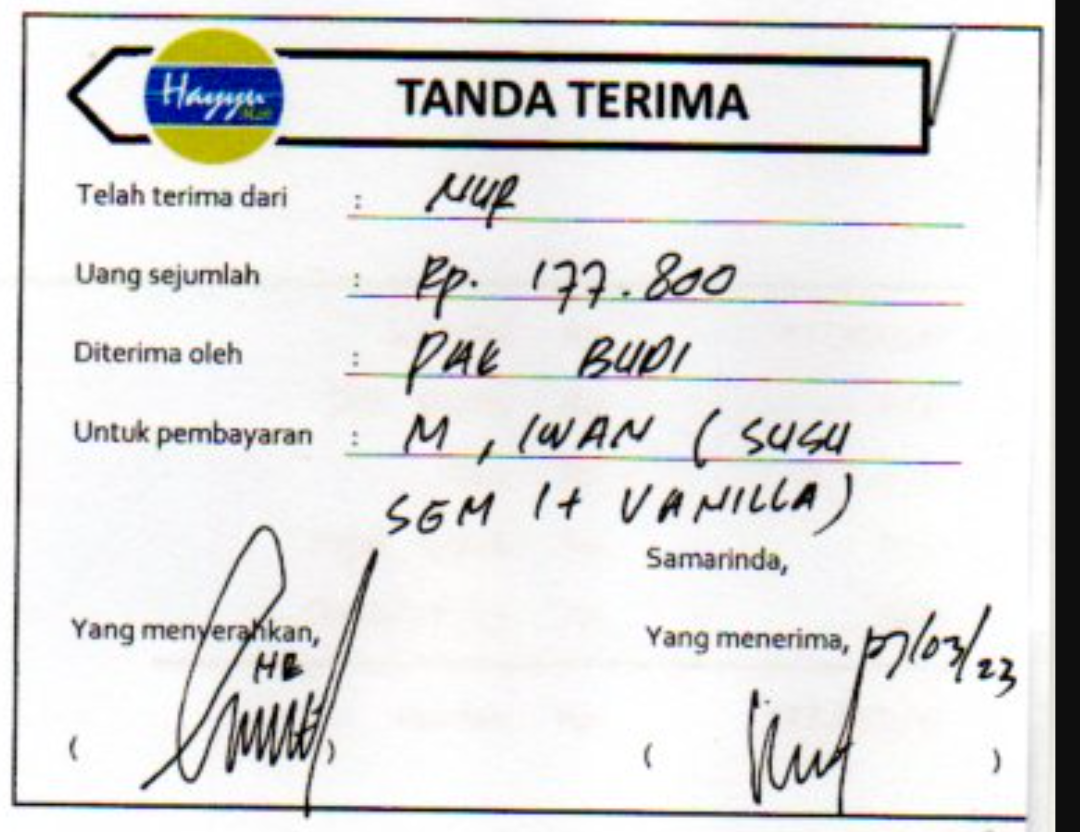 Hayyu Mart
TANDA TERIMA
Telah terima dari : NUR
Uang sejumlah : Rp. 177.800
Diterima oleh : PAK BUDI
Untuk pembayaran : M, IWAN (SUSU
SGM 1+ VANILLA)
Samarinda,
Yang menyerahkan,
Yang menerima, 07/03/23
HR
( )
( )